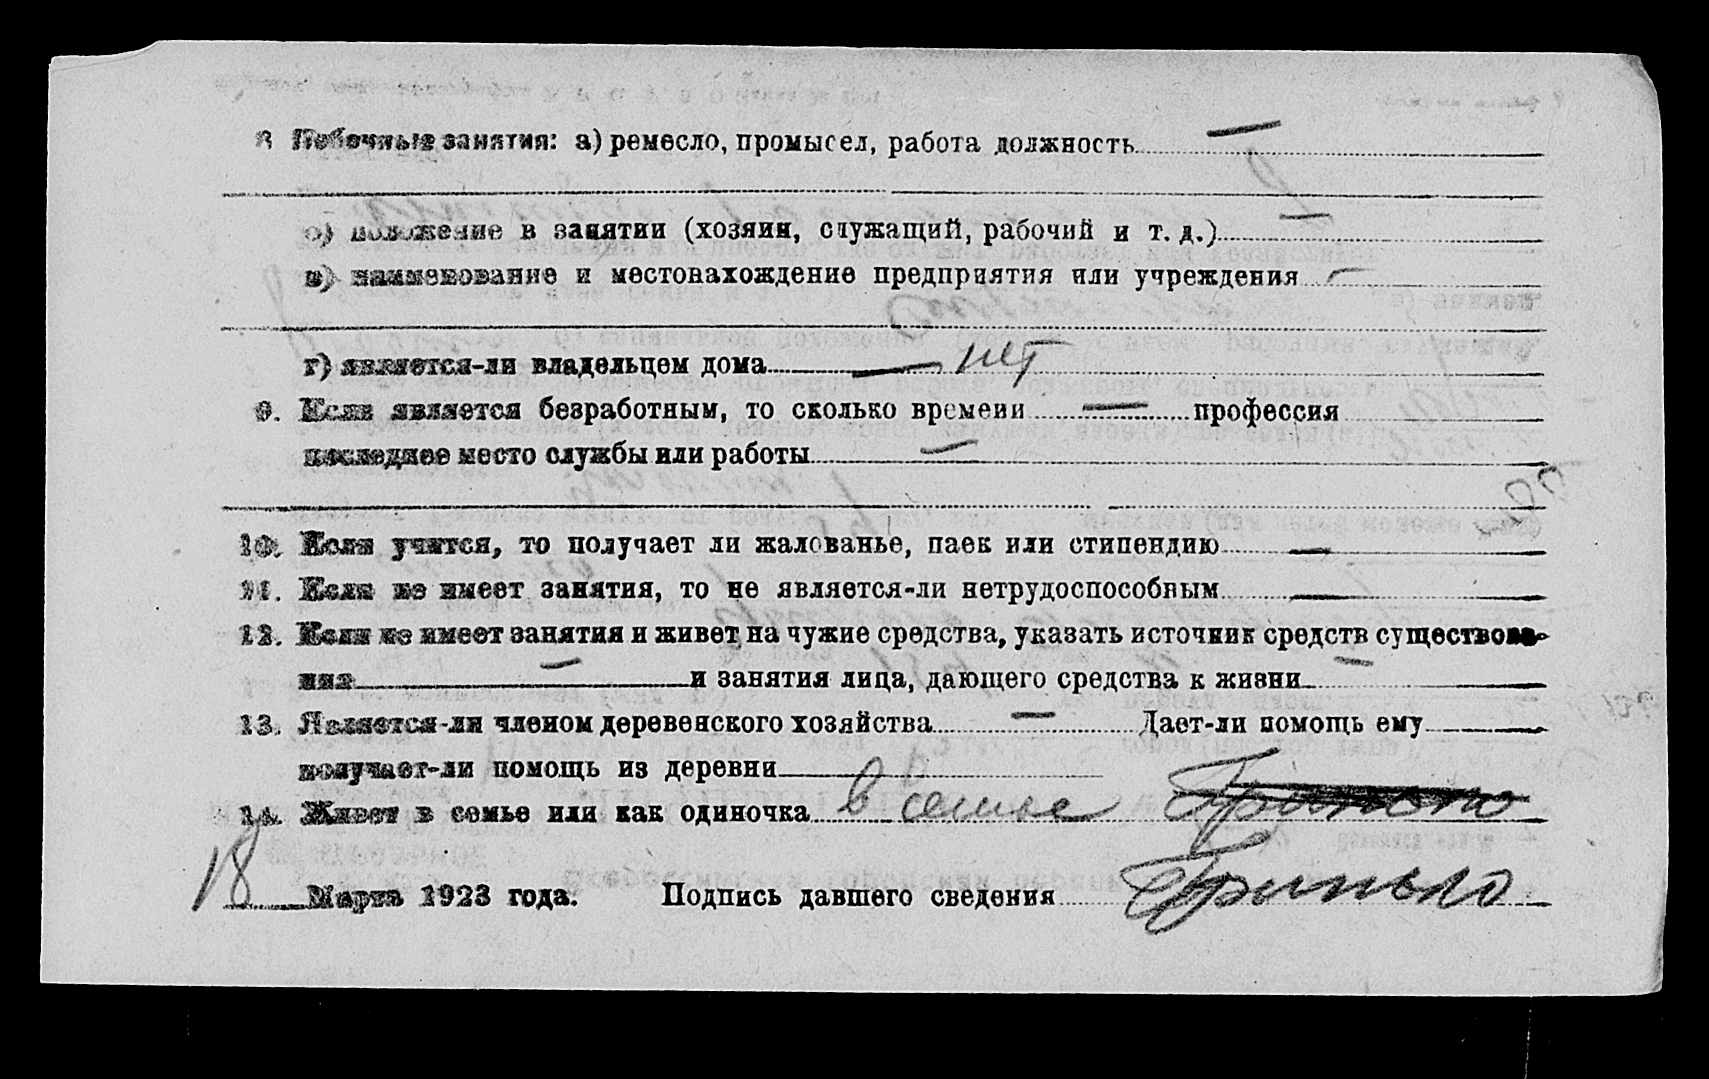 8 Побочные занятия: а) ремесло, промысел, работа должность —
б) положение в занятии (хозяин, служащий, рабочий и т. д.) —
в) наименование и местонахождение предприятия или учреждения —
г) является-ли владельцем дома — нет
9. Если является безработным, то сколько времени — профессия
последнее место службы или работы —
10. Если учится, то получает ли жалованье, паек или стипендию —
11. Если не имеет занятия, то не является-ли нетрудоспособным —
12. Если не имеет занятия и живет на чужие средства, указать источник средств существова-
ния — и занятия лица, дающего средства к жизни —
13. Является-ли членом деревенского хозяйства — Дает-ли помощь ему
получает-ли помощь из деревни
14. Живет в семье или как одиночка в семье
18 Марта 1923 года. Подпись давшего сведения